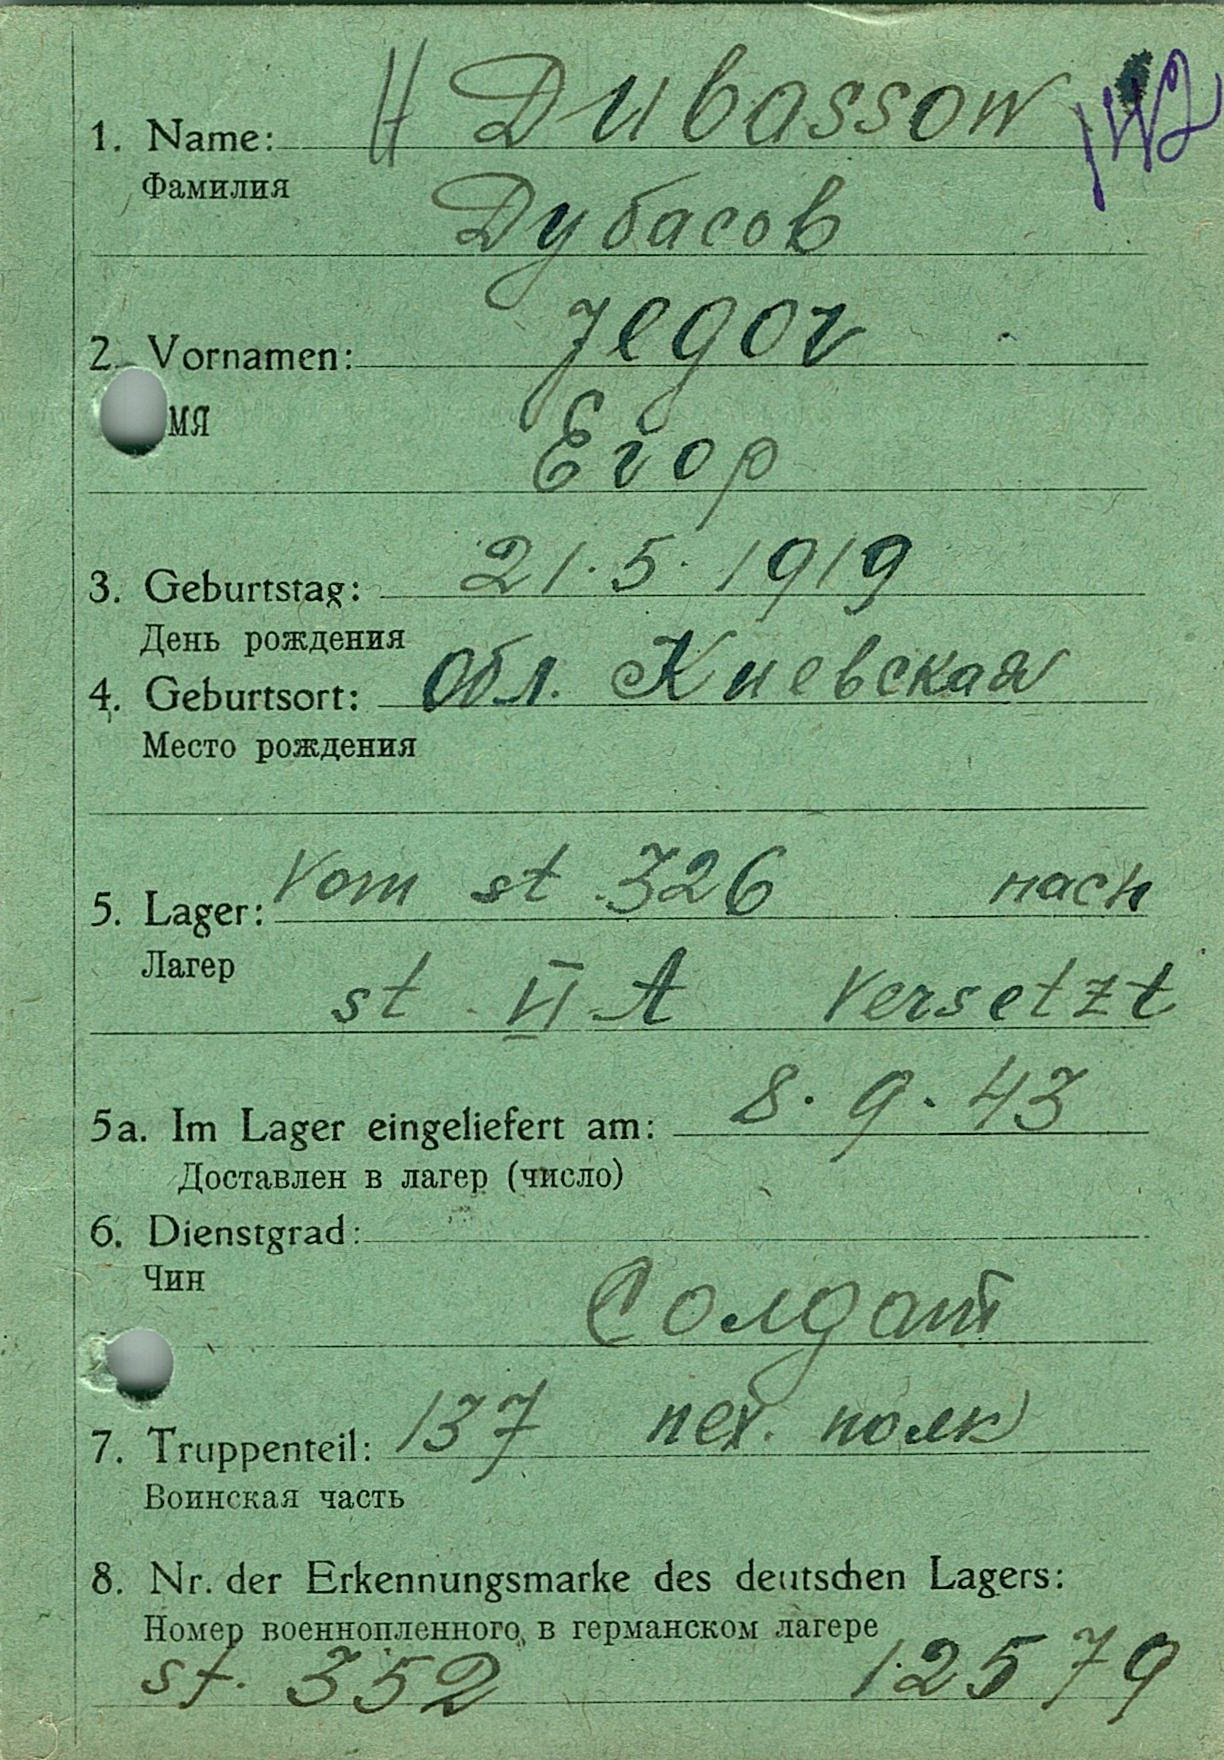 1. Name: Dubassow
Фамилия
Дубасов
2. Vornamen: Jegor
МЯ
Егор
3. Geburtstag: 21.5.1919
День рождения
4. Geburtsort: Обл. Киевская
Место рождения
5. Lager: Vom st 326 nach
Лагер
st. VI A versetzt
5a. Im Lager eingeliefert am: 8.9.43
Доставлен в лагер (число)
6. Dienstgrad:
Чин
Солдат
7. Truppenteil: 137 пех. полк
Воинская часть
8. Nr. der Erkennungsmarke des deutschen Lagers:
Номер военнопленного в германском лагере
st. 352 12579